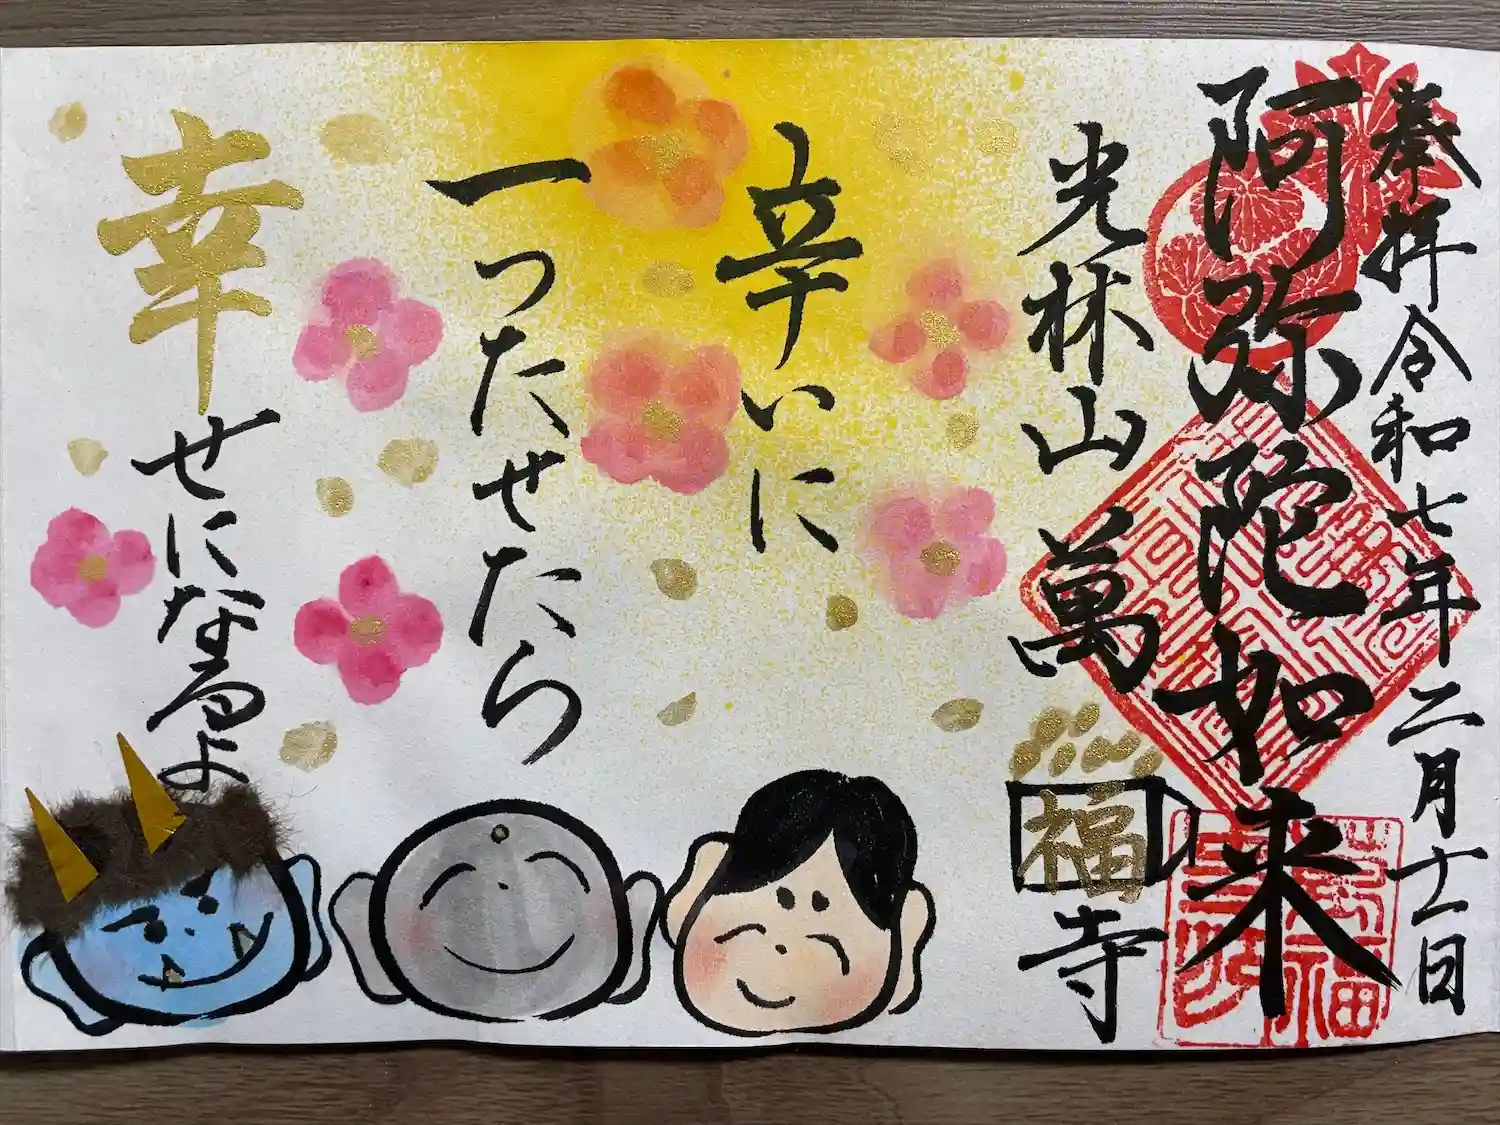 奉拝 令和七年二月十一日
阿弥陀如来
光林山 萬福寺
辛いに
一つたせたら
幸せになるよ